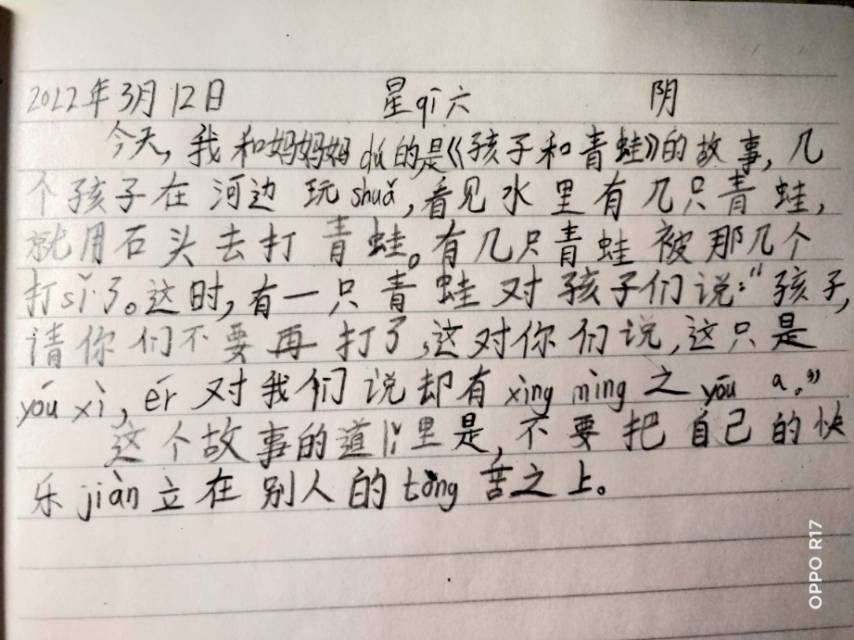 2022年3月12日 星qī六 阴
今天,我和妈妈妈dú的是《孩子和青蛙》的故事,几
个孩子在河边玩shuǎ,看见水里有几只青蛙,
就用石头去打青蛙。有几只青蛙被那几个
打sǐ了。这时,有一只青蛙对孩子们说:“孩子,
请你们不要再打了,这对你们说,这只是
yóu xì,ér对我们说却有xìng mìng之yōu a。”
这个故事的道lǐ里是,不要把自己的快
乐jiàn立在别人的tòng苦之上。
OPPO R17